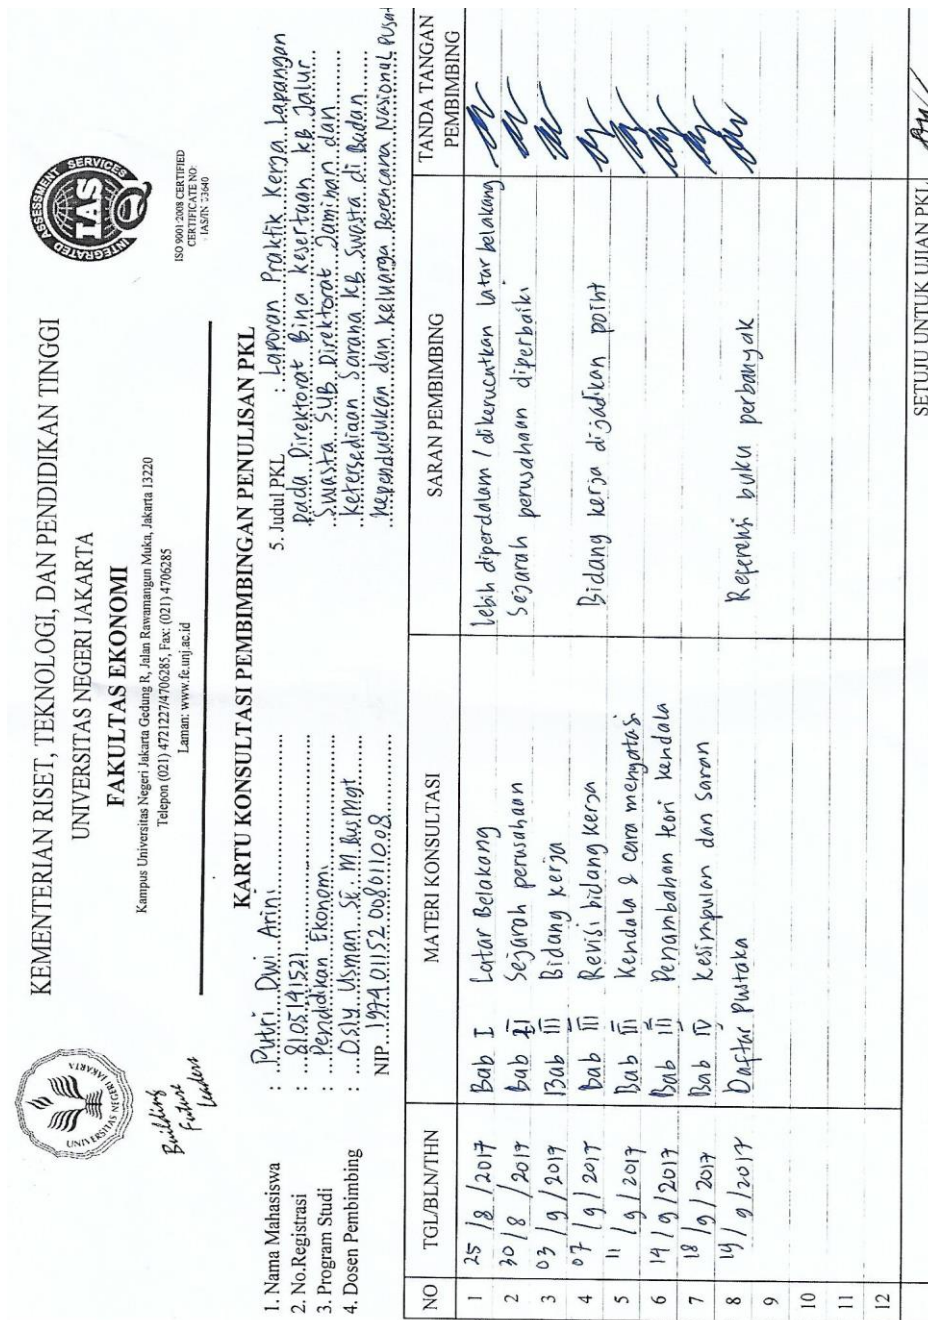 KEMENTERIAN RISET, TEKNOLOGI, DAN PENDIDIKAN TINGGI
UNIVERSITAS NEGERI JAKARTA
FAKULTAS EKONOMI
Kampus Universitas Negeri Jakarta Gedung R, Jalan Rawamangun Muka, Jakarta 13220
Telepon (021) 4721227/4706285, Fax: (021) 4706285
Laman: www.fe.unj.ac.id
UNIVERSITAS NEGERI JAKARTA
Building
Future
Leaders
INTEGRATED ASSESSMENT SERVICES
IAS
ISO 9001:2008 CERTIFIED
CERTIFICATE NO:
KARTU KONSULTASI PEMBIMBINGAN PENULISAN PKL
1. Nama Mahasiswa : Putri Dwi Arini
2. No.Registrasi : 8105141521
3. Program Studi : Pendidikan Ekonomi
4. Dosen Pembimbing : Osly Usman SE. M Bus Mgt
NIP. 197401152008011008
5. Judul PKL : Laporan Praktik Kerja Lapangan
Pada Direktorat Bina Kesertaan KB Jalur
Swasta SUB Direktorat Jaminan dan
Ketersediaan Sarana KB Swasta di Badan
Kependudukan dan Keluarga Berencana Nasional Pusat
NO TGL/BLN/THN MATERI KONSULTASI SARAN PEMBIMBING TANDA TANGAN PEMBIMBING
1 25/8/2017 Bab I Latar Belakang lebih diperdalam / dikerucutkan latar belakang
2 30/8/2017 Bab II Sejarah perusahaan Sejarah perusahaan diperbaiki
3 03/9/2017 Bab III Bidang kerja
4 07/9/2017 Bab III Revisi bidang kerja Bidang kerja dijadikan point
5 11/9/2017 Bab III Kendala & cara mengatasi
6 14/9/2017 Bab III Penambahan teori kendala
7 18/9/2017 Bab IV Kesimpulan dan Saran
8 19/9/2017 Daftar Pustaka Referensi buku perbanyak
9
10
11
12
SETUJU UNTUK UJIAN PKL